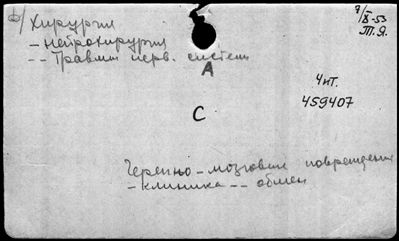 Ф/ Хирургия
9/X-53
Т.Я.
– нейрохирургия
-- Травмы нерв. систем
А
Чит.
459407
С
Черепно-мозговые повреждения
– клиника -- обмен